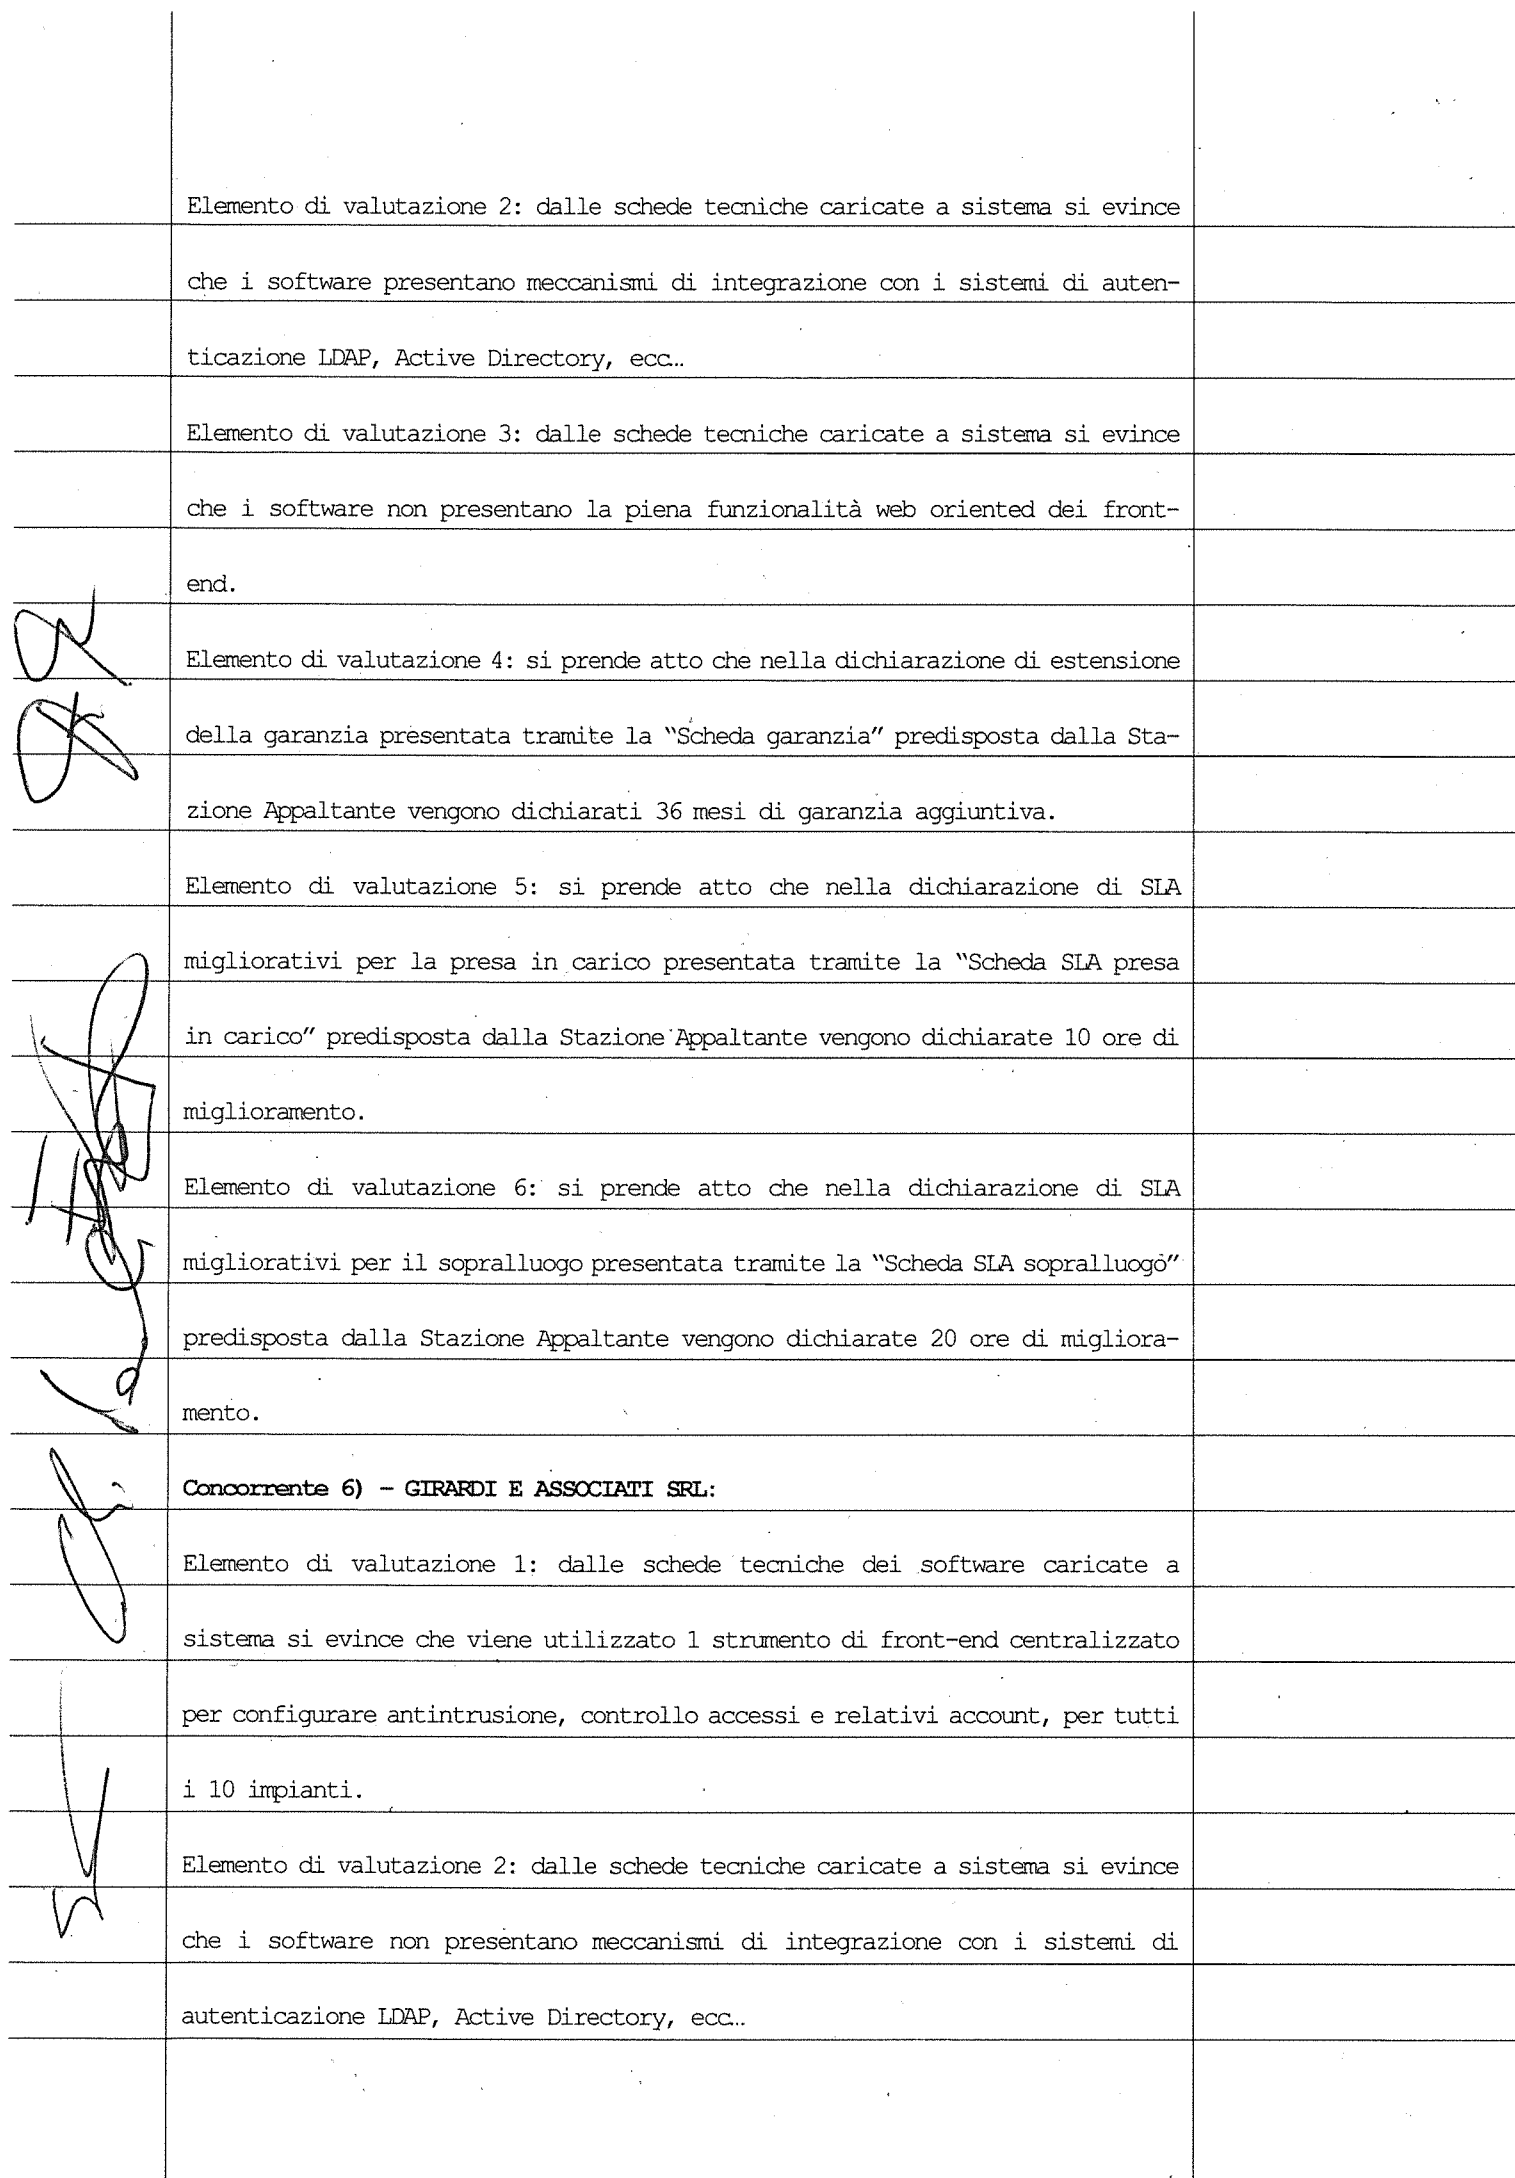 Elemento di valutazione 2: dalle schede tecniche caricate a sistema si evince
che i software presentano meccanismi di integrazione con i sistemi di auten-
ticazione LDAP, Active Directory, ecc…
Elemento di valutazione 3: dalle schede tecniche caricate a sistema si evince
che i software non presentano la piena funzionalità web oriented dei front-
end.
Elemento di valutazione 4: si prende atto che nella dichiarazione di estensione
della garanzia presentata tramite la “Scheda garanzia” predisposta dalla Sta-
zione Appaltante vengono dichiarati 36 mesi di garanzia aggiuntiva.
Elemento di valutazione 5: si prende atto che nella dichiarazione di SLA
migliorativi per la presa in carico presentata tramite la “Scheda SLA presa
in carico” predisposta dalla Stazione Appaltante vengono dichiarate 10 ore di
miglioramento.
Elemento di valutazione 6: si prende atto che nella dichiarazione di SLA
migliorativi per il sopralluogo presentata tramite la “Scheda SLA sopralluogo”
predisposta dalla Stazione Appaltante vengono dichiarate 20 ore di migliora-
mento.
Concorrente 6) – GIRARDI E ASSOCIATI SRL:
Elemento di valutazione 1: dalle schede tecniche dei software caricate a
sistema si evince che viene utilizzato 1 strumento di front-end centralizzato
per configurare antintrusione, controllo accessi e relativi account, per tutti
i 10 impianti.
Elemento di valutazione 2: dalle schede tecniche caricate a sistema si evince
che i software non presentano meccanismi di integrazione con i sistemi di
autenticazione LDAP, Active Directory, ecc…